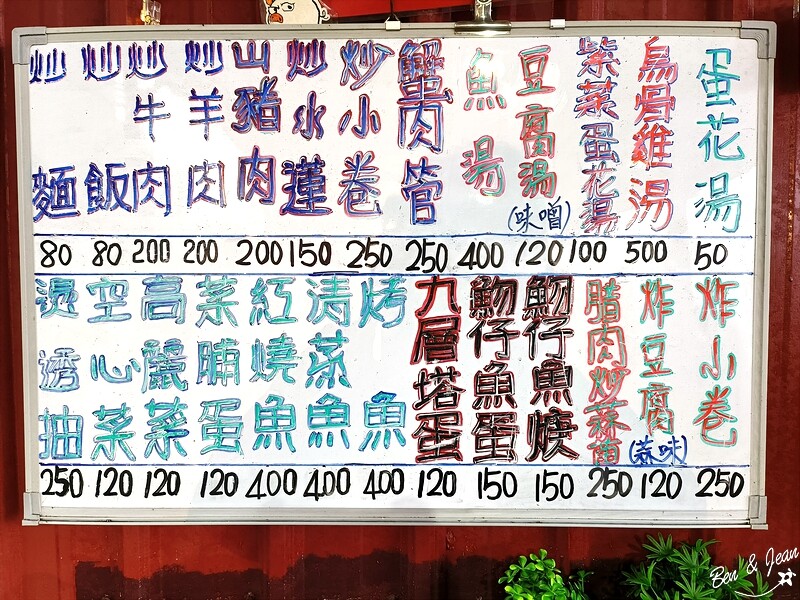 蛋花湯
50
烏骨雞湯
500
紫菜蛋花湯
100
豆腐湯
(味噌)
120
魚湯
400
蟹肉管
250
炒小卷
250
炒水蓮
150
山豬肉
200
炒羊肉
200
炒牛肉
200
炒飯
80
炒麵
80
炸小卷
250
炸豆腐
(蒜味)
120
腊肉炒蒜苗
250
魩仔魚焿
150
魩仔魚蛋
150
九層塔蛋
120
烤魚
400
清蒸魚
400
紅燒魚
400
菜脯蛋
120
高麗菜
120
空心菜
120
燙透抽
250
Ben & Jean